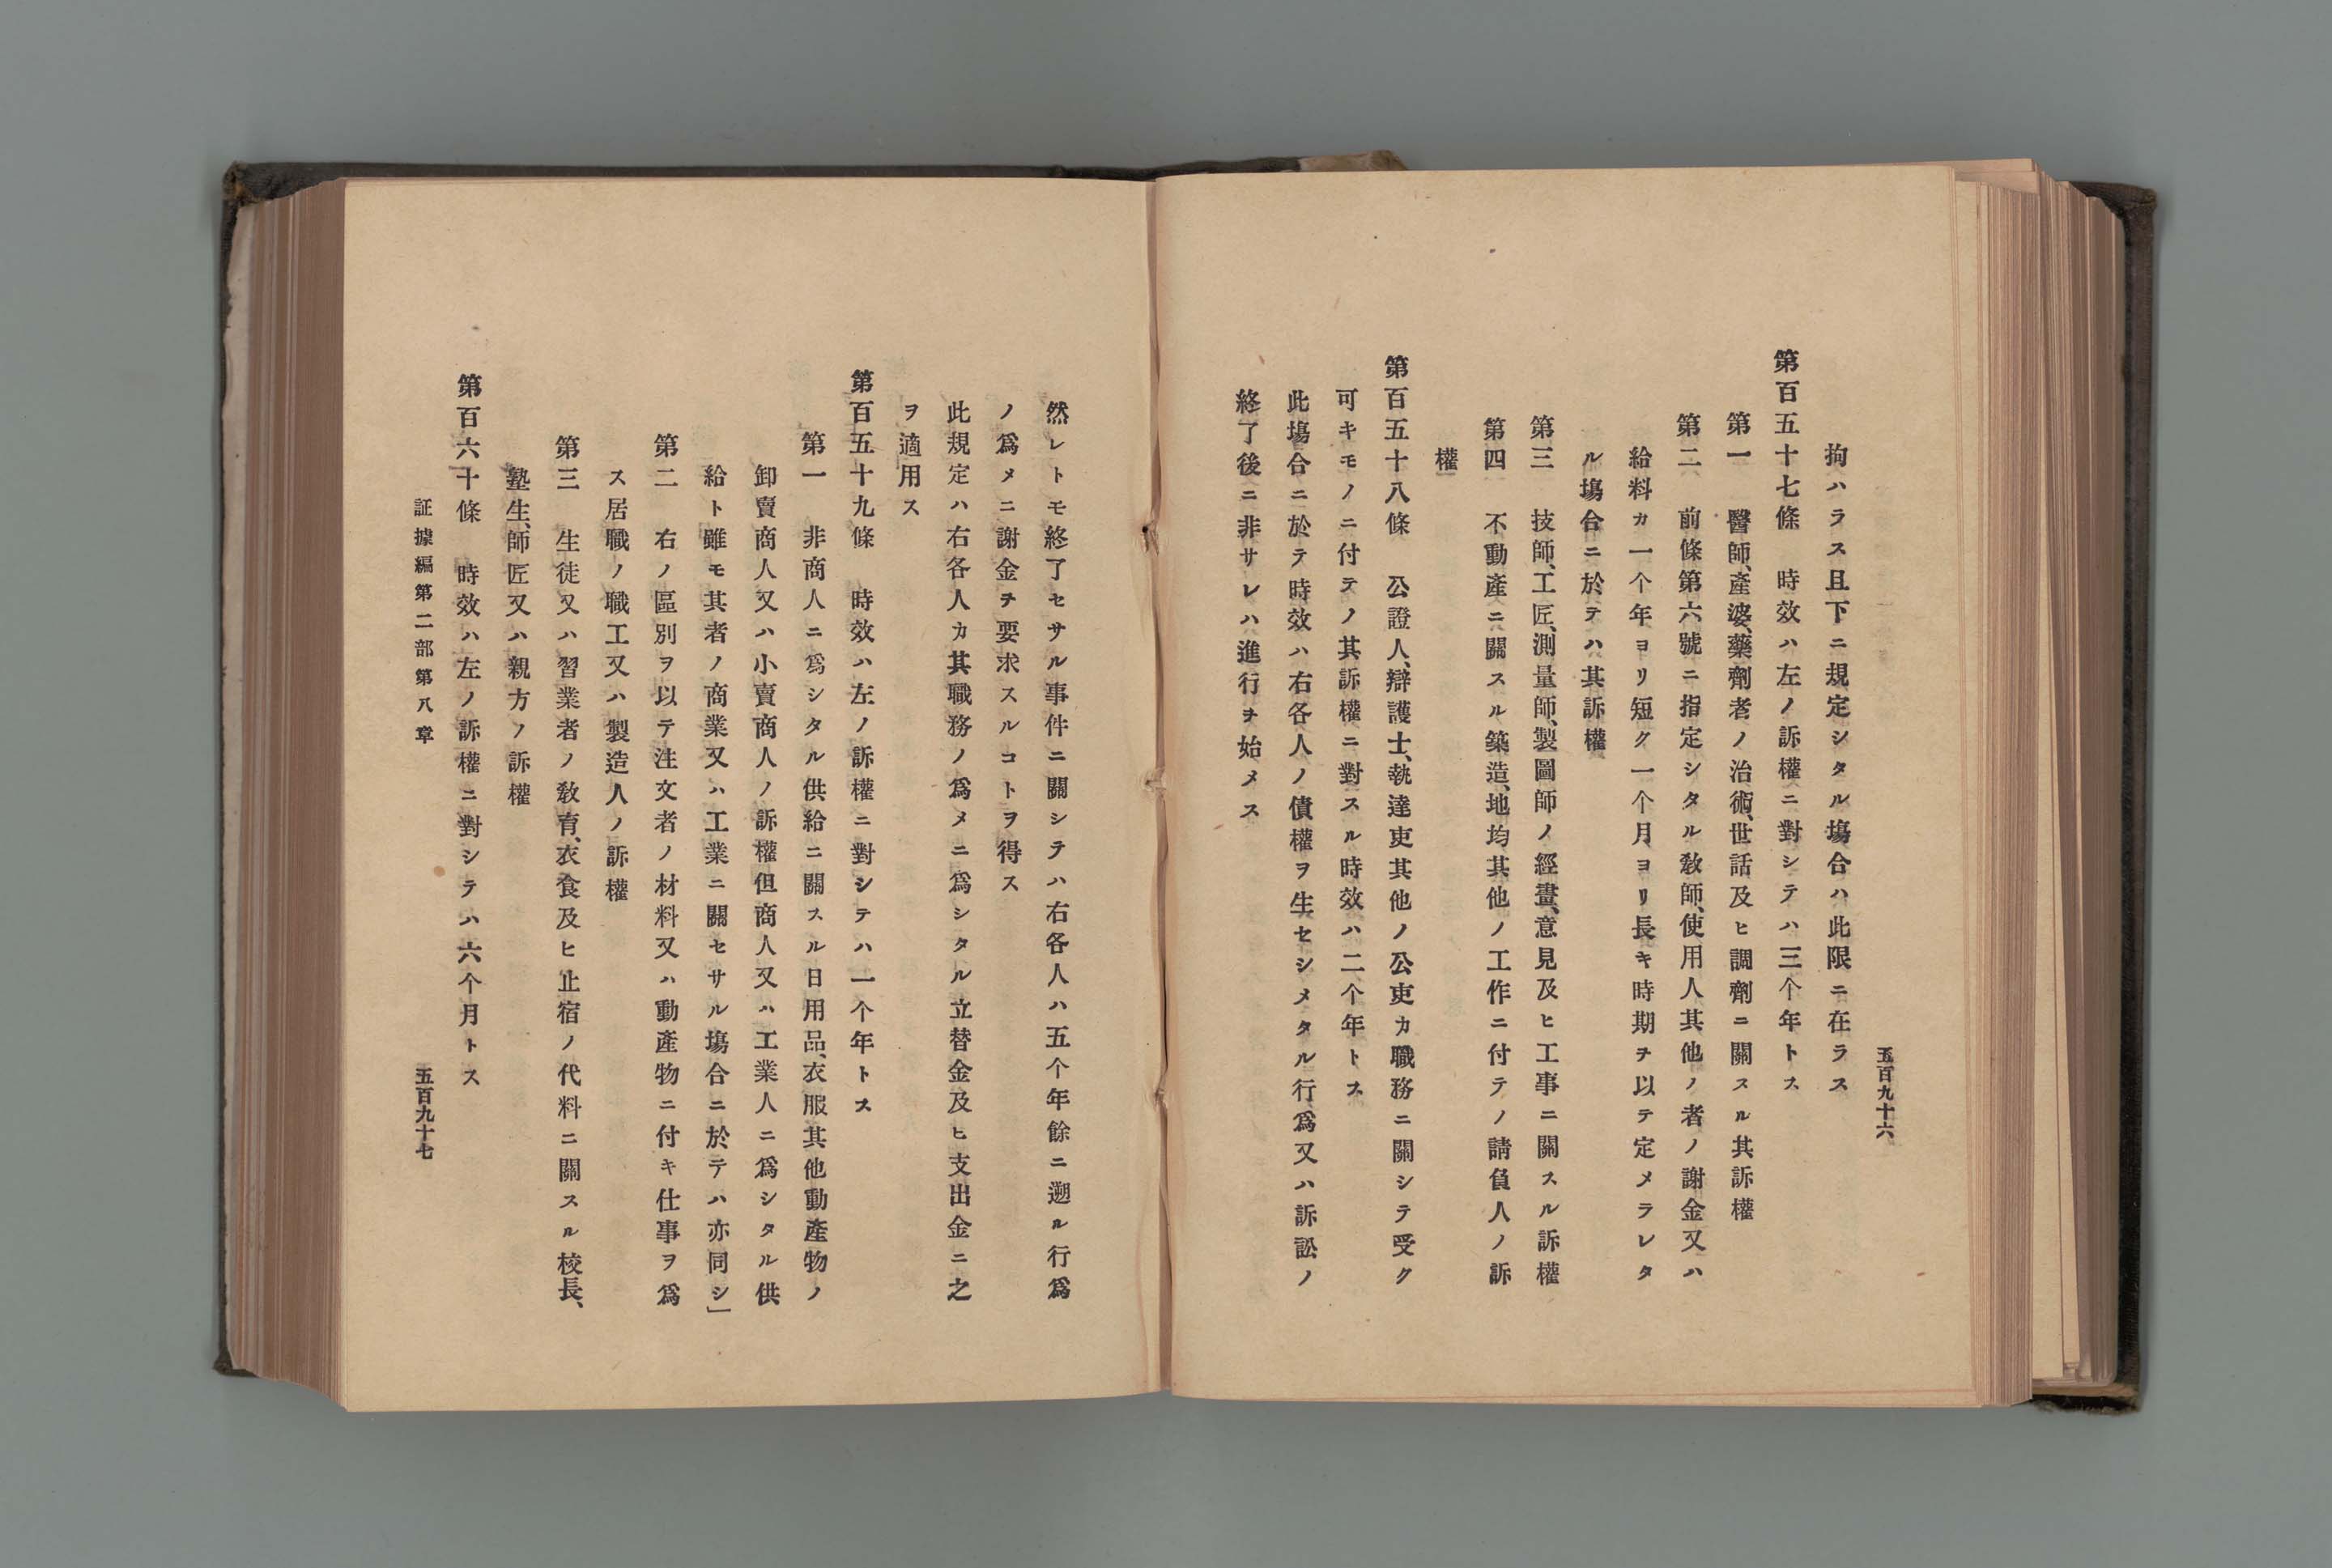 五百九十六
拘ハラス且下ニ規定シタル塲合ハ此限ニ在ラス
第百五十七條　時效ハ左ノ訴權ニ對シテハ三个年トス
第一　醫師、產婆、藥劑者ノ治術、世話及ヒ調劑ニ關スル其訴權
第二　前條第六號ニ指定シタル敎師、使用人其他ノ者ノ謝金又ハ
給料カ一个年ヨリ短ク一个月ヨリ長キ時期ヲ以テ定メラレタ
ル塲合ニ於テハ其訴權
第三　技師、工匠、測量師、製圖師ノ經畫、意見及ヒ工事ニ關スル訴權
第四　不動產ニ關スル築造、地均其他ノ工作ニ付テノ請負人ノ訴
權
第百五十八條　公證人、辯護士、執達吏其他ノ公吏カ職務ニ關シテ受ク
可キモノニ付テノ其訴權ニ對スル時效ハ二个年トス
此塲合ニ於テ時效ハ右各人ノ債權ヲ生セシメタル行爲又ハ訴訟ノ
終了後ニ非サレハ進行ヲ始メス
然レトモ終了セサル事件ニ關シテハ右各人ハ五个年餘ニ遡ル行爲
ノ爲メニ謝金ヲ要求スルコトヲ得ス
此規定ハ右各人カ其職務ノ爲メニ爲シタル立替金及ヒ支出金ニ之
ヲ適用ス
第百五十九條　時效ハ左ノ訴權ニ對シテハ一个年トス
第一　非商人ニ爲シタル供給ニ關スル日用品、衣服其他動產物ノ
卸賣商人又ハ小賣商人ノ訴權但商人又ハ工業人ニ爲シタル供
給ト雖モ其者ノ商業又ハ工業ニ關セサル塲合ニ於テハ亦同シ」
第二　右ノ區別ヲ以テ注文者ノ材料又ハ動產物ニ付キ仕事ヲ爲
ス居職ノ職工又ハ製造人ノ訴權
第三　生徒又ハ習業者ノ敎育、衣食及ヒ止宿ノ代料ニ關スル校長、
塾生、師匠又ハ親方ノ訴權
第百六十條　時效ハ左ノ訴權ニ對シテハ六个月トス
証據編第二部第八章
五百九十七